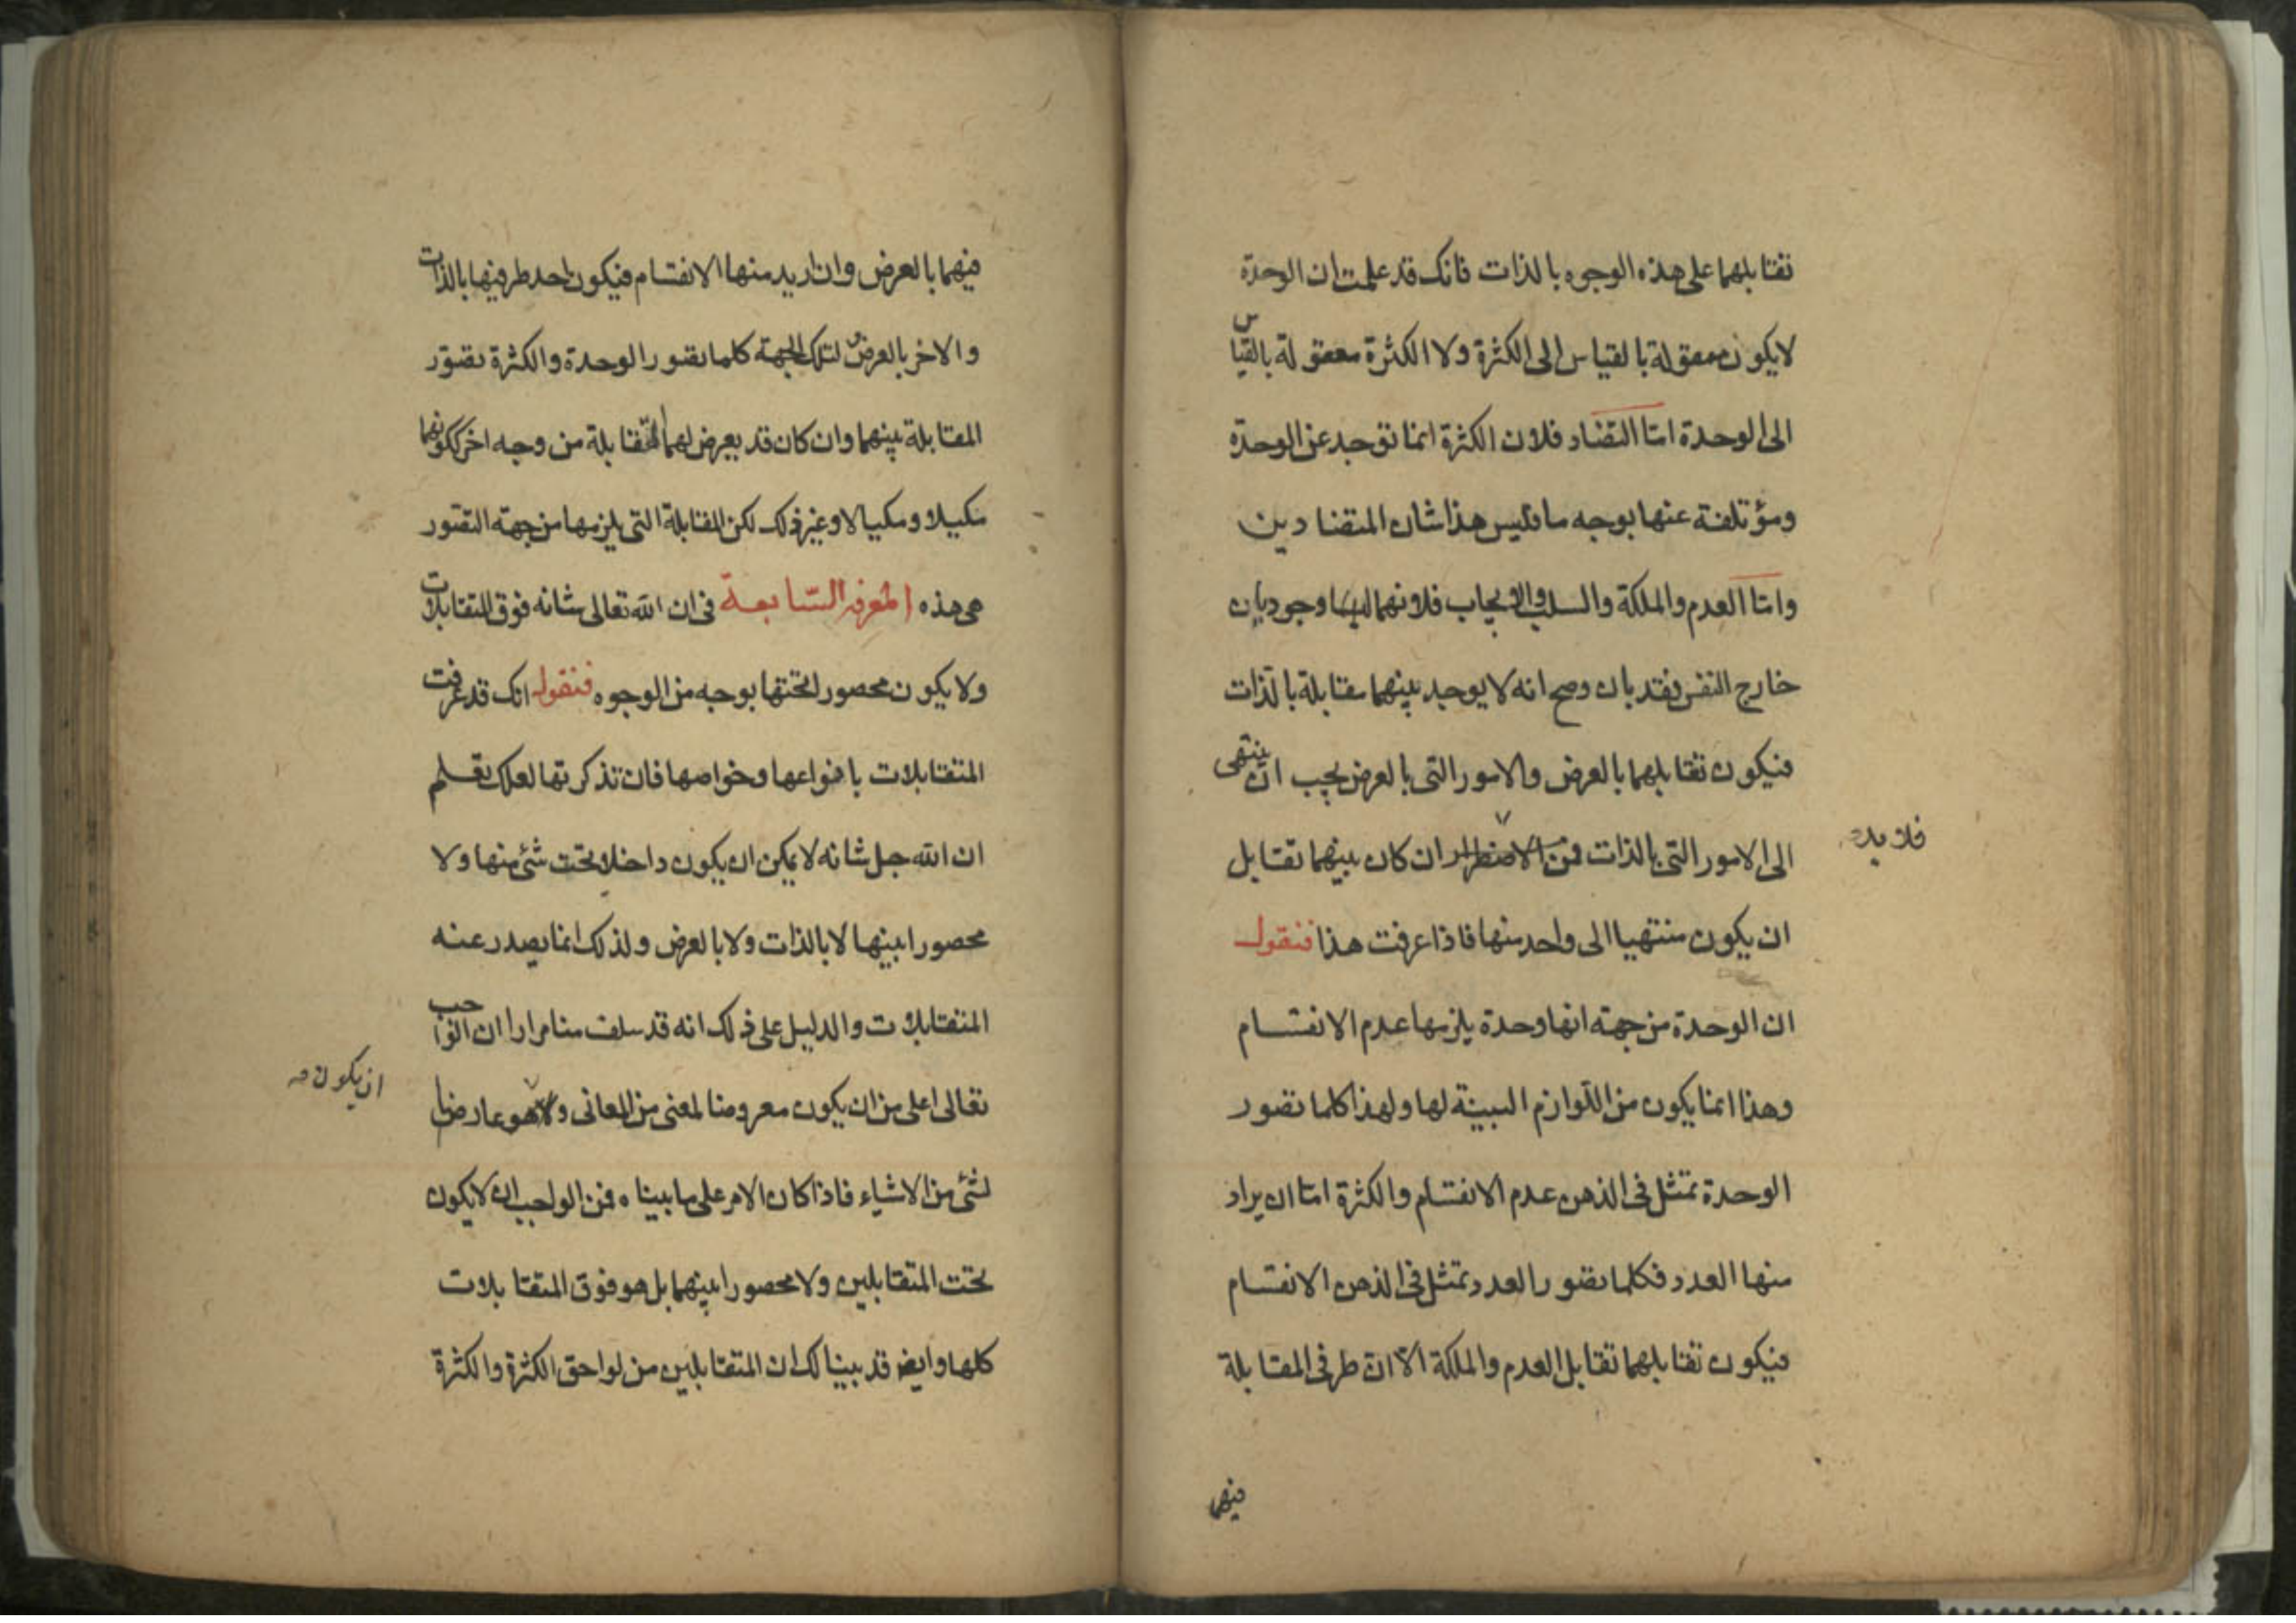 تقابلهما على هذه الوجوه بالذات فانك قد علمت ان الوحدة
لا يكون معقولة بالقياس الى الكثرة ولا الكثرة معقولة بالقياس
الى الوحدة امّا التضاد فلان الكثرة انما توجد عن الوحدة
ومؤتلفة عنها بوجه ما وليس هذا شان المتضادين
وامّا العدم والملكة والسلب والايجاب فلانهما وجوديان
خارج النفس فقد بان وصح انه لا يوجد بينهما مقابلة بالذات
فيكون تقابلهما بالعرض والامور التى بالعرض يجب ان ينتهى
الى الامور التى بالذات فمن الاضطرار ان كان بينهما تقابل
فلا بد
ان يكون منتهيا الى واحد منها فاذا عرفت هذا فنقول
ان الوحدة من جهة انها وحدة يلزمها عدم الانقسام
وهذا انما يكون من اللّوازم البينة لها ولهذا كلما تصور
الوحدة تمثل فى الذهن عدم الانقسام والكثرة امّا ان يراد
منها العدد فكلما تصور العدد تمثل فى الذهن الانقسام
فيكون تقابلهما تقابل العدم والملكة الّا انّ طرفى المقابلة
فيهما
فيهما بالعرض وان اريد منها الانقسام فيكون احد طرفيها بالذات
والاخر بالعرض لتلك الجهة كلما تصور الوحدة والكثرة تصوّر
المقابلة بينهما وان كان قد يعرض لهما المقابلة من وجه اخر ككونهما
مكيلا ومكيالا وغير ذلك لكن المقابلة التى يلزمها من جهة التصور
هى هذه المعرفة السّابعة فى ان الله تعالى شانه فوق المتقابلات
ولا يكون محصورا تحتها بوجه من الوجوه فنقول انك قد عرفت
المتقابلات بانواعها وخواصها فان تذكرتها لعلك تعلم
ان الله جل شانه لا يمكن ان يكون داخلا تحت شئ منها ولا
محصورا بينها لا بالذات ولا بالعرض ولذلك انما يصدر عنه
المتقابلات والدليل على ذلك انه قد سلف منا مرارا ان الواجب
تعالى اعلى من ان يكون معروضا لمعنى من المعانى ولا هو عارضا
ان يكون
لشئ من الاشياء فاذا كان الامر على ما بيناه فمن الواجب ان لا يكون
تحت المتقابلين ولا محصورا بينهما بل هو فوق المتقابلات
كلها وايضا قد بينا لك ان المتقابلين من لواحق الكثرة والكثرة